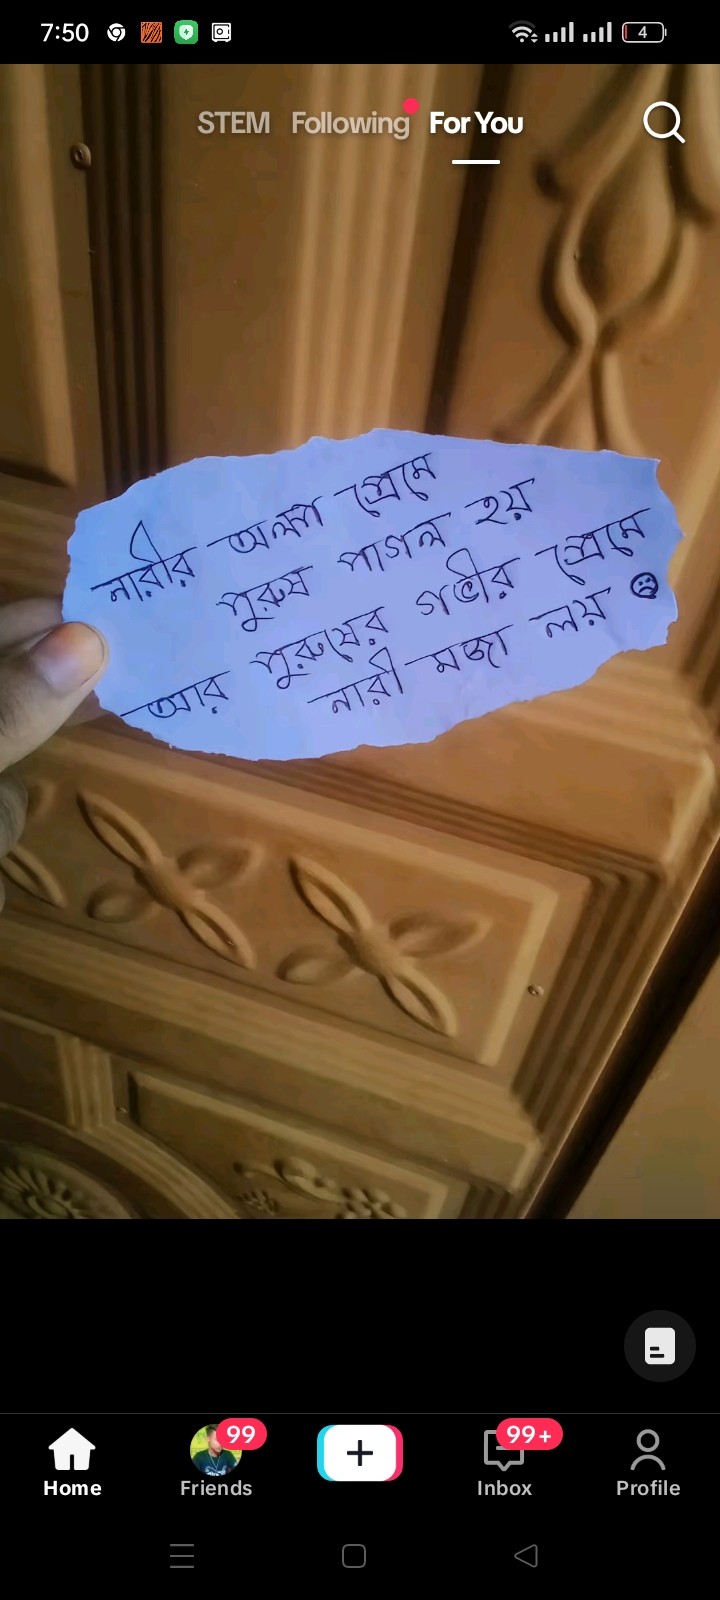 7:50
4
STEM Following For You
নারীর অল্প প্রেমে
পুরুষ পাগল হয়
আর পুরুষের গভীর প্রেমে
নারী মজা লয়
99
99+
Home Friends Inbox Profile